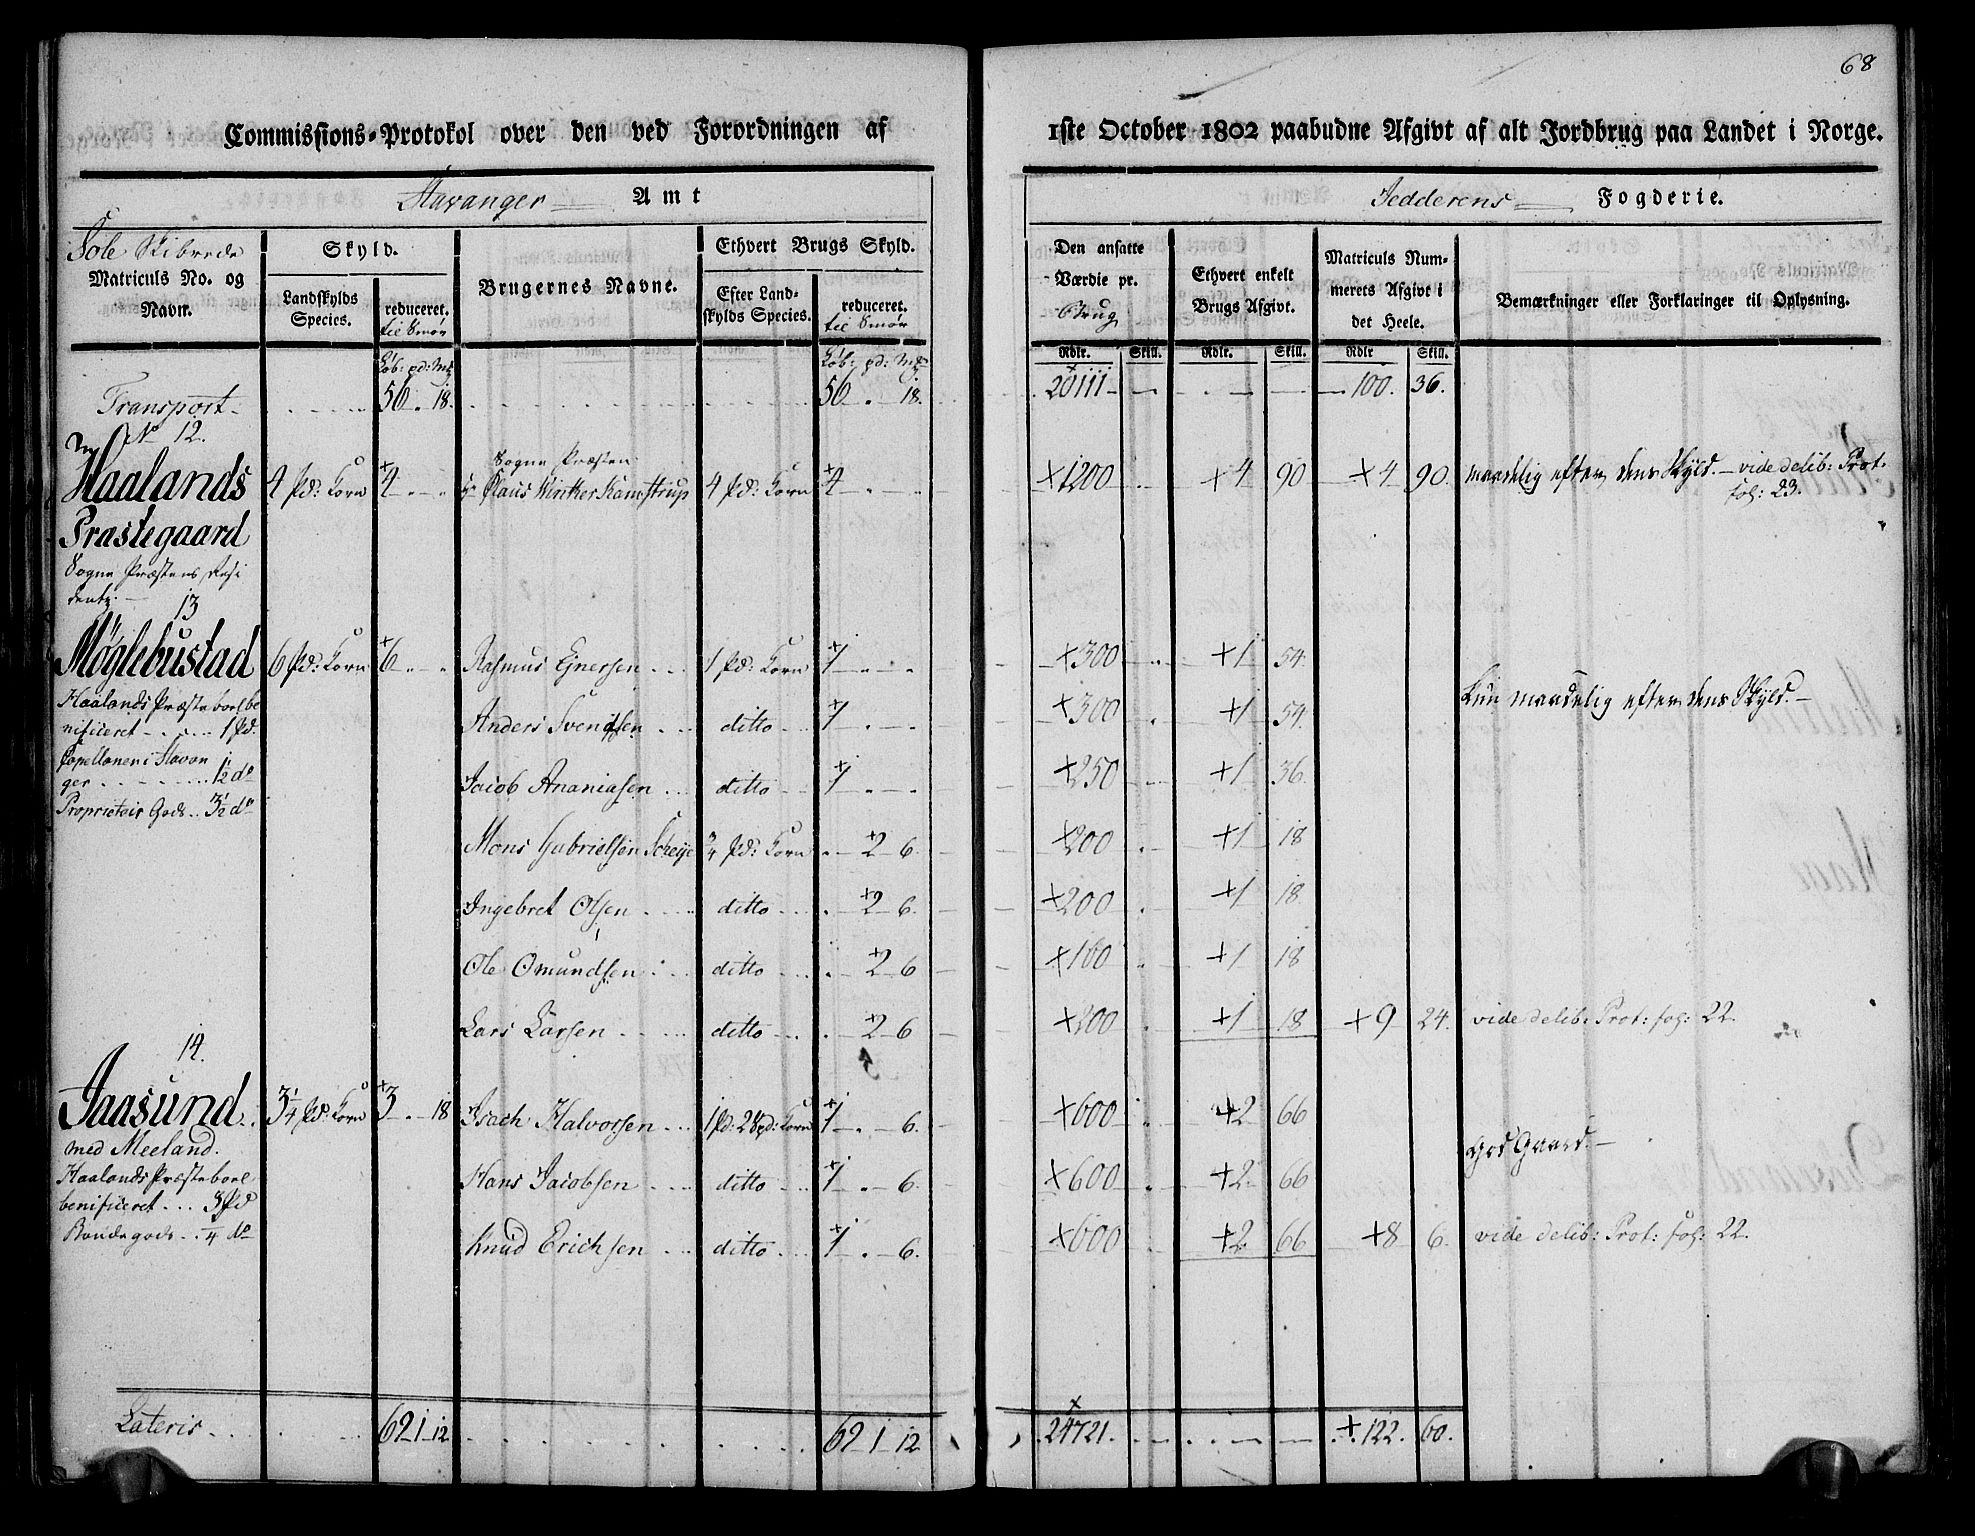 68
Commissions-Protokol over den ved Forordningen af 1ste October 1802 paabudne Afgivt af alt Jordbrug paa Landet i Norge.
Stavanger Amt
Jedderens Fogderie.
Sole Skibrede
Matriculs No. og Navn.
Skyld.
Landskylds Species.
reduceret. til Smør
Brugernes Navne.
Ethvert Brugs Skyld.
Efter Landskylds Species.
reduceret. til Smør
Den ansatte Værdie pr. Brug
Ethvert enkelt Brugs Afgivt.
Matriculs Nummerets Afgivt i det Heele.
Bemærkninger eller Forklaringer til Oplysning.
Rdlr. Skill. Rdlr. Skill. Rdlr Skill.
Transport 56 . 18. 56 . 18. 20111 100. 36.
No 12.
Haalands 4 Pd: Korn 4 Sogne Præsten
Hr Olaus Winther Kamstrup 4 Pd: Korn 4 1200 4 90 4 90. maadelig efter dens Skyld. vide delib: Prot: fol: 23.
Præstegaard
Sogne Præstens Resi
dentz.
13
Møglebustad 6 Pd: Korn 6 Rasmus Ejnersen 1 Pd: Korn 1 300 1 54.
Haalands Præsteboel be
nificeret 1 Pd.
Kun maadelig efter dens Skyld.
Anders Svendsen ditto 1 300 1 54
Capellanen i Stavan
ger 1½ do
Jacob Ananiasen ditto 1 250 1 36
Proprietair Gods 3½ do
Mons Gabrielsen Scheye ¾ Pd: Korn 2 6. 200 1 18
Ingebret Olsen ditto 2 6. 200 1 18.
Ole Omundsen ditto 2 6 160 1 18
Lars Larsen ditto 2 6 200 1 18 9 24. vide delib: Prot: fol: 22.
14.
Jaasund 3¼ Pd: Korn 3 . 18 Isach Halvorsen 1 Pd: 2 8pd: Korn 1 . 6. 600 2 66
med Meeland.
God Gaard.
Haalands Præsteboel
benificeret 3 Pd
Hans Jacobsen ditto 1 . 6. 600 2 66
Bondegods ¼ do
Knud Erichsen ditto 1 . 6. 600 2 66 8 6. vide delib: Prot: fol: 22.
Lateris 62 1 12 62 1 12 24721. 122. 60.